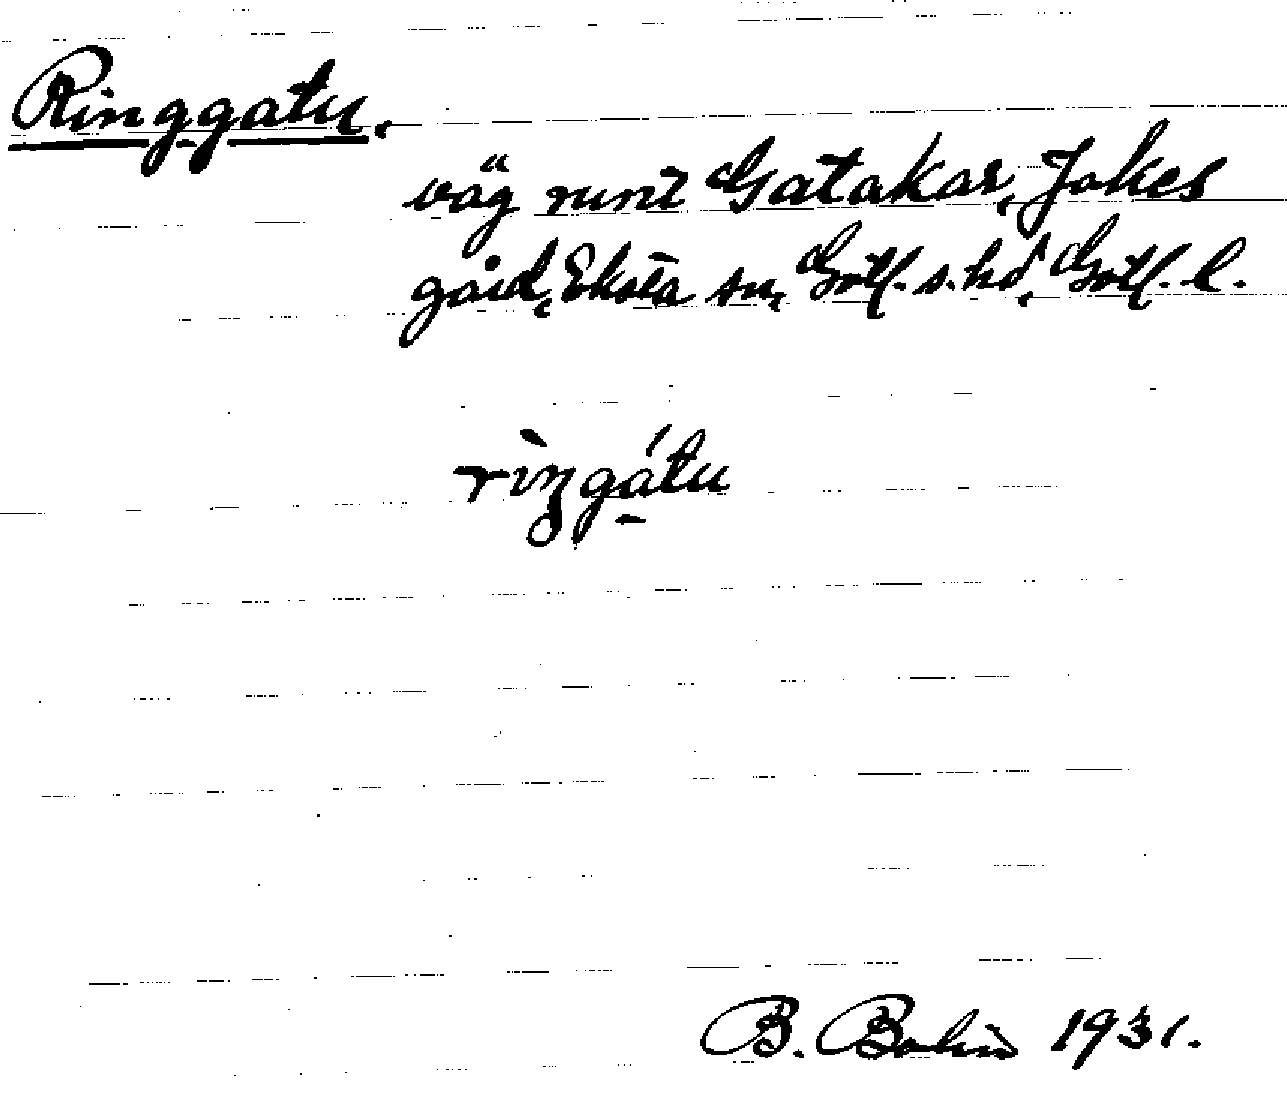 Ringgatu,
väg runt Gatakar, Jakes
gård, Eksta sn, Gotl. s. hd, Gotl. l.
rìŋgátu
B. Bolin 1931.